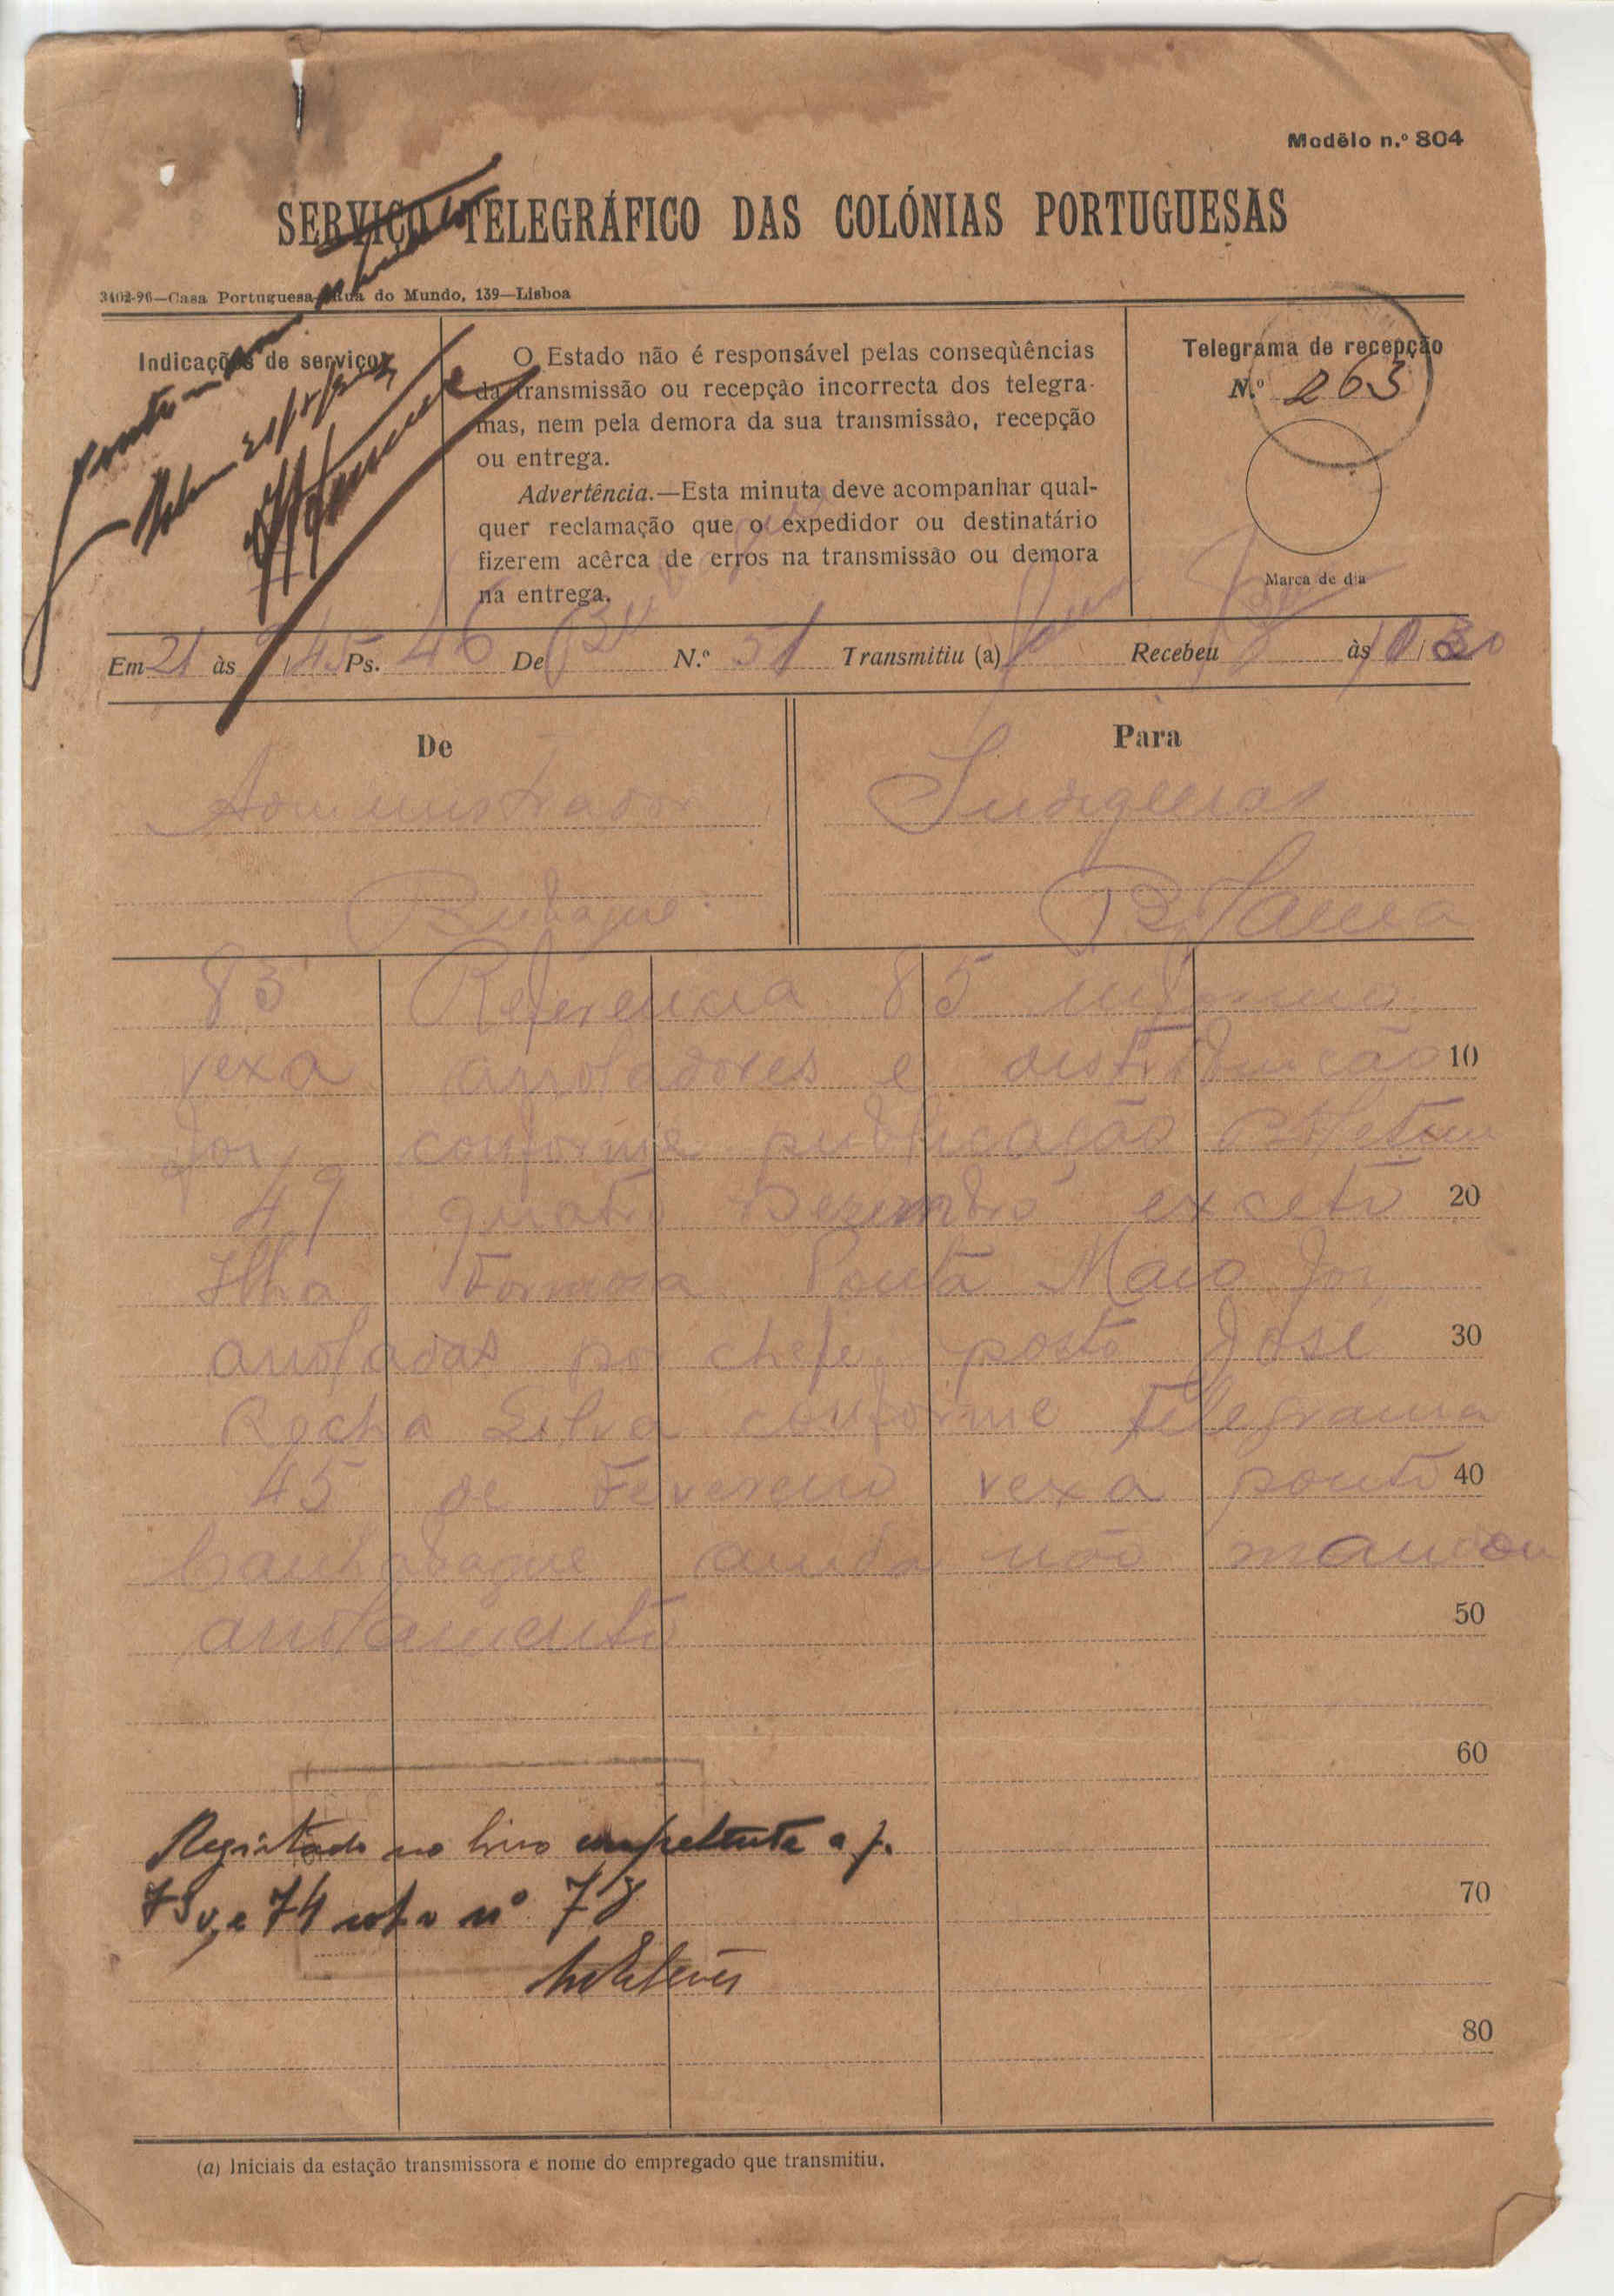 Modêlo n.º 804
SERVIÇO TELEGRÁFICO DAS COLÓNIAS PORTUGUESAS
3402-96—Casa Portuguesa—Rua do Mundo, 139—Lisboa
Indicações de serviço
O Estado não é responsável pelas conseqùências
da transmissão ou recepção incorrecta dos telegra-
mas, nem pela demora da sua transmissão, recepção
ou entrega.
Advertência.—Esta minuta deve acompanhar qual-
quer reclamação que o expedidor ou destinatário
fizerem acêrca de erros na transmissão ou demora
na entrega.
Telegrama de recepção
N.º 263
Marca de dia
Em 21 às 9/45 Ps. 46 De Bu N.º 51 Transmitiu (a) Recebeu às 10/30
De
Administrador
Bubaque
Para
Indigenas
Bolama
83 Referencia 85 informo
vexa arroladores e distribuição 10
for conforme publicação Boletim
49 quatro Dezembro exceto 20
Ilha Formosa Ponta Maio for
aroladas por chefe posto José 30
Rocha Silva conforme telegrama
45 de Fevereiro vexa ponto 40
Canhabaque ainda não mandou
arolamento 50
60
Registado no livro competente a f.
73 v, e 74 sob o nº 78 70
80
(a) Iniciais da estação transmissora e nome do empregado que transmitiu.